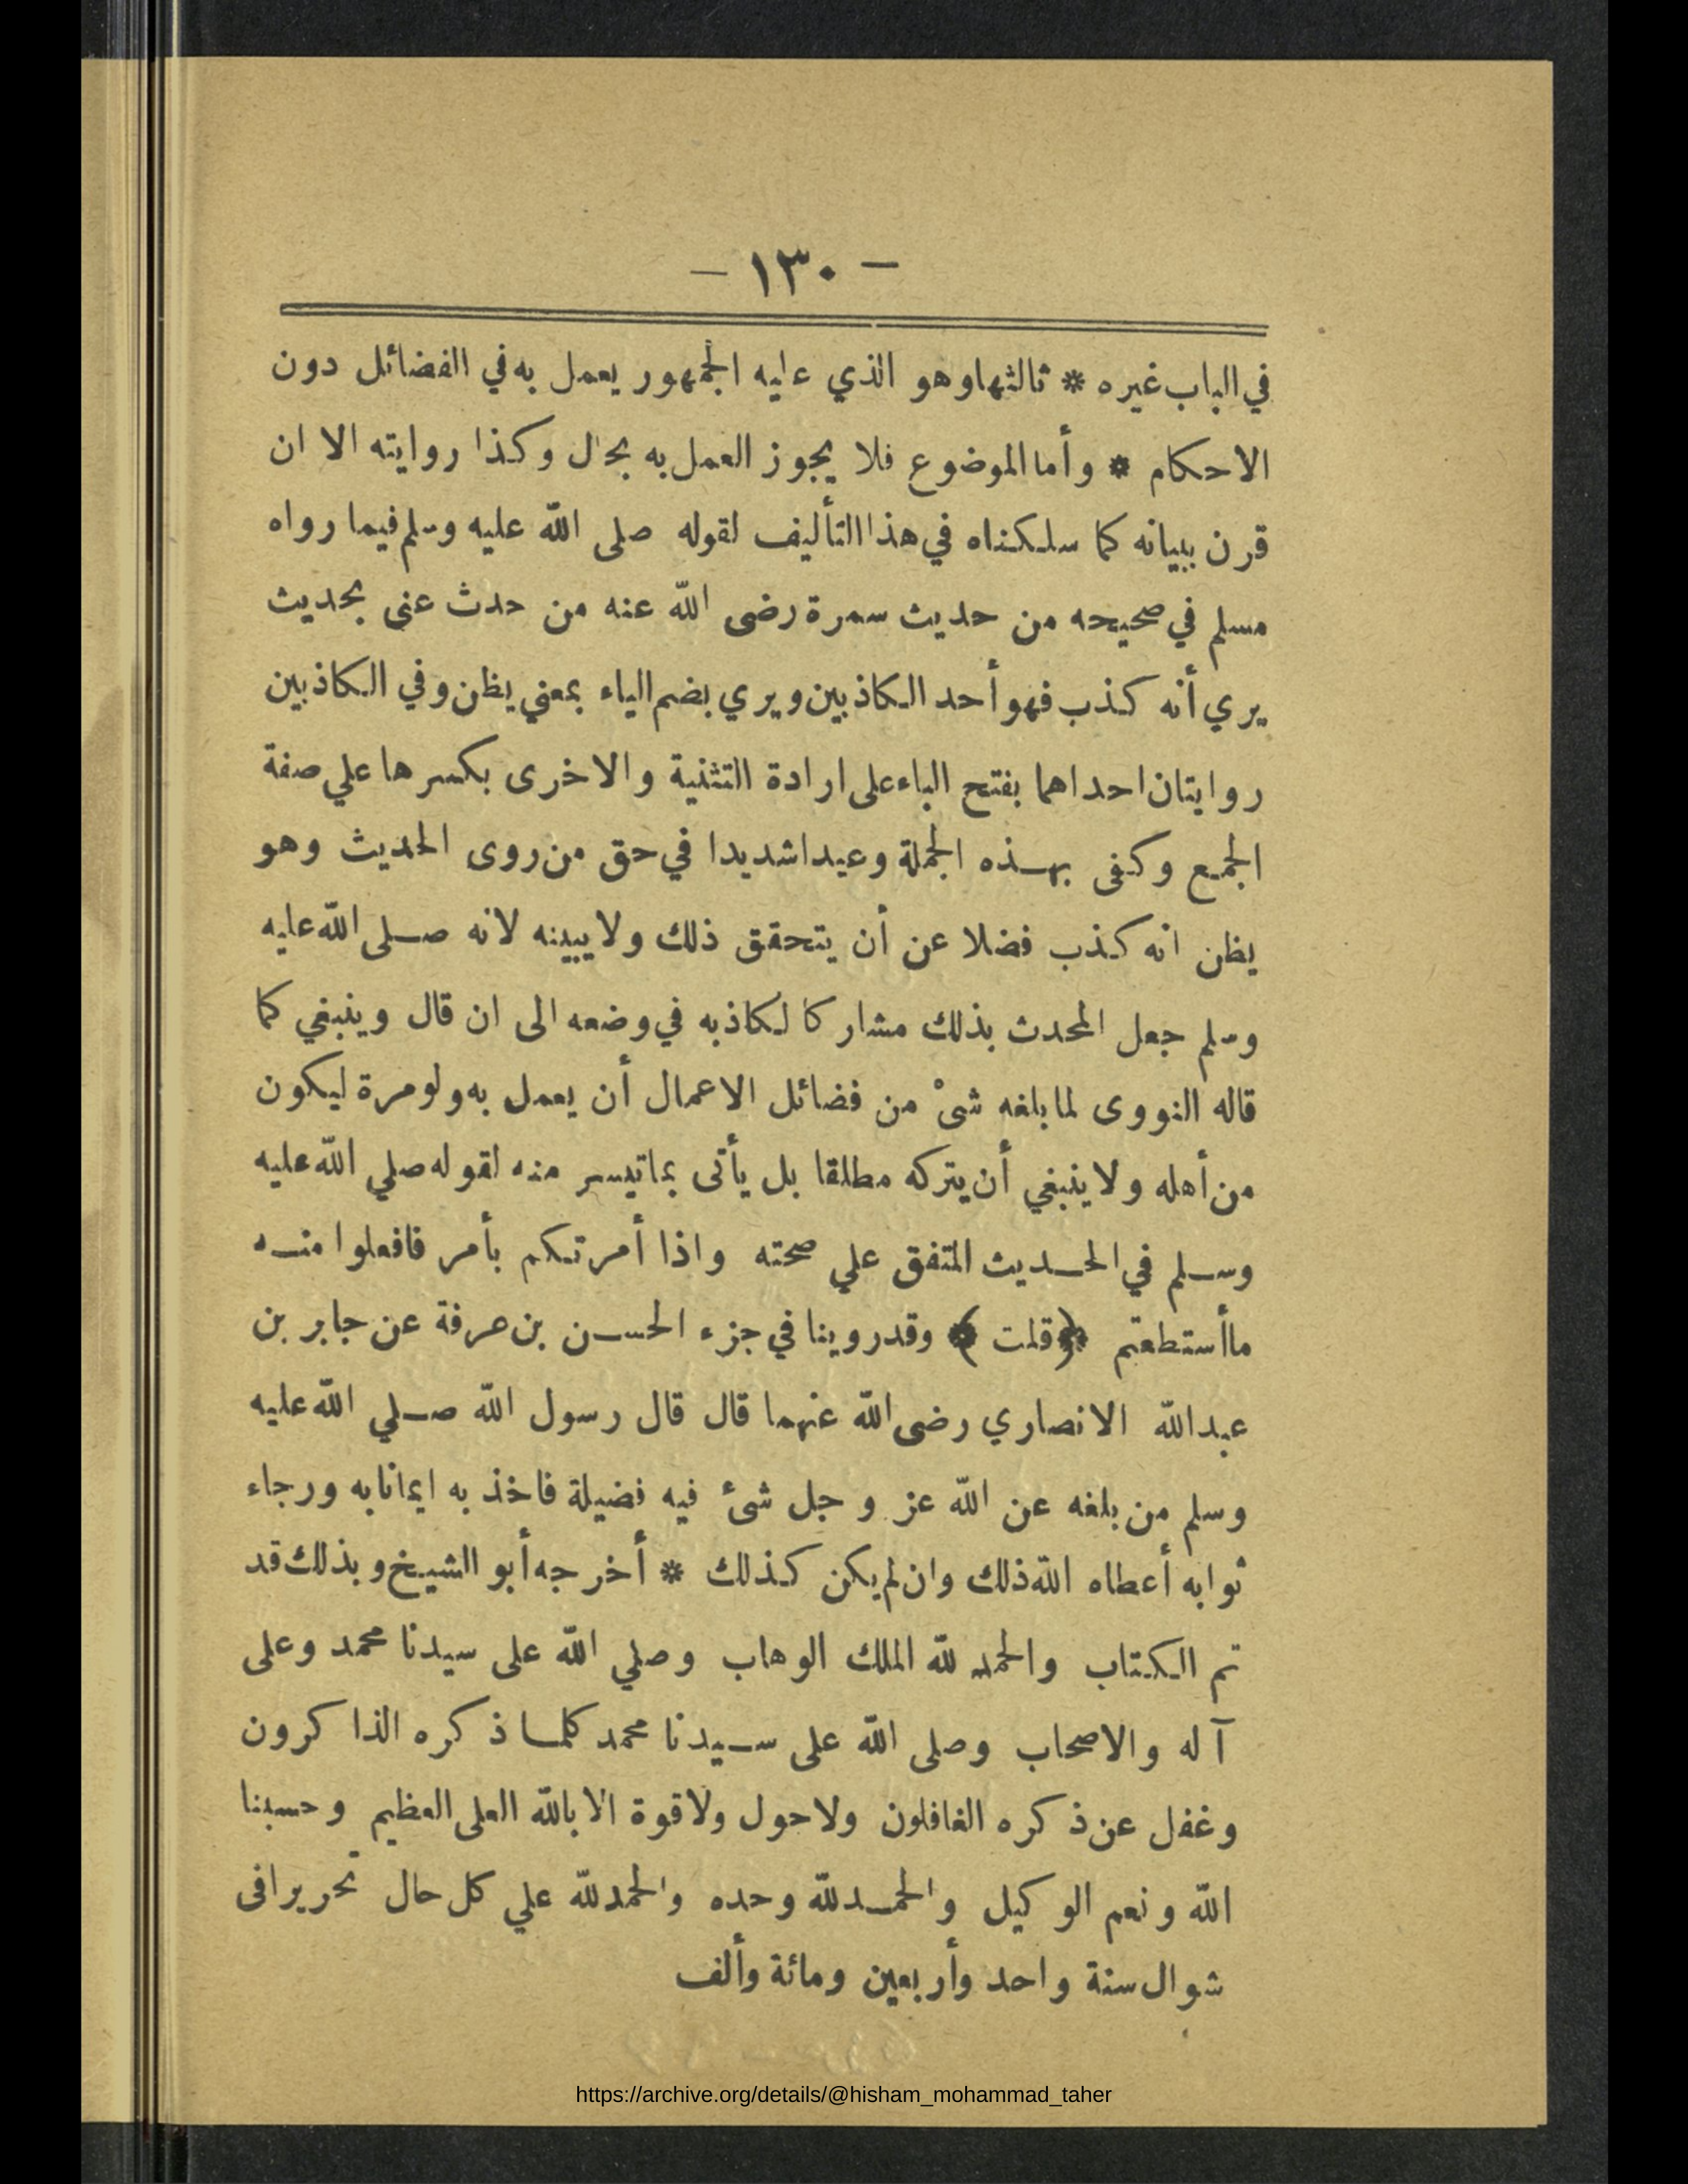 — ١٣٠ —
في الباب غيره * ثالثها وهو الذي عليه الجمهور يعمل به في الفضائل دون
الاحكام * وأما الموضوع فلا يجوز العمل به بحال وكذا روايته الا ان
قرن ببيانه كما سلكناه في هذا التأليف لقوله صلى الله عليه وسلم فيما رواه
مسلم في صحيحه من حديث سمرة رضى الله عنه من حدث عنى بحديث
يري أنه كذب فهو أحد الكاذبين ويري بضم الياء بمعني يظن وفي الكاذبين
روايتان احداهما بفتح الباء على ارادة التثنية والاخرى بكسرها علي صفة
الجمع وكفى بهذه الجملة وعيدا شديدا في حق من روى الحديث وهو
يظن انه كذب فضلا عن أن يتحقق ذلك ولا يبينه لانه صلى الله عليه
وسلم جعل المحدث بذلك مشاركا لكاذبه في وضعه الى ان قال وينبغي كما
قاله النووى لما بلغه شىْ من فضائل الاعمال أن يعمل به ولو مرة ليكون
من أهله ولا ينبغي أن يتركه مطلقا بل يأتى بما تيسر منه لقوله صلي الله عليه
وسلم في الحديث المتفق علي صحته واذا أمرتكم بأمر فافعلوا منه
ما أستطعتم ﴿ قلت ﴾ وقد روينا في جزء الحسن بن عرفة عن جابر بن
عبد الله الانصاري رضى الله عنهما قال قال رسول الله صلي الله عليه
وسلم من بلغه عن الله عز وجل شئ فيه فضيلة فاخذ به ايمانا به ورجاء
ثوابه أعطاه الله ذلك وان لم يكن كذلك * أخرجه أبو الشيخ وبذلك قد
تم الكتاب والحمد لله الملك الوهاب وصلي الله على سيدنا محمد وعلى
آله والاصحاب وصلى الله على سيدنا محمد كلما ذكره الذاكرون
وغفل عن ذكره الغافلون ولا حول ولا قوة الا بالله العلى العظيم وحسبنا
الله ونعم الوكيل والحمد لله وحده والحمد لله علي كل حال تحريرا فى
شوال سنة واحد وأربعين ومائة وألف
https://archive.org/details/@hisham_mohammad_taher